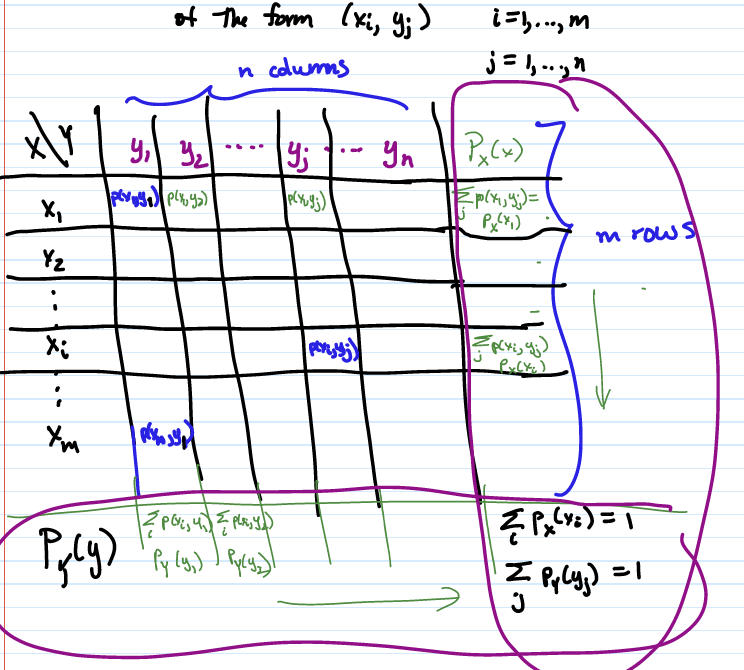 of the form (xi, yj) i=1,...,m
j=1,...,n
n columns
X\Y y1 y2 .... yj ... yn Px(x)
x1 p(x1,y1) p(x1,y2) p(x1,yj) Σj p(x1,yj)=
Px(x1)
m rows
x2
⋮
xi p(xi,yj) Σj p(xi,yj)
Px(xi)
⋮
xm p(xm,y1)
PY(y) Σi p(xi,y1) Σi p(xi,y2) Σi Px(xi)=1
PY(y1) PY(y2) Σj PY(yj)=1